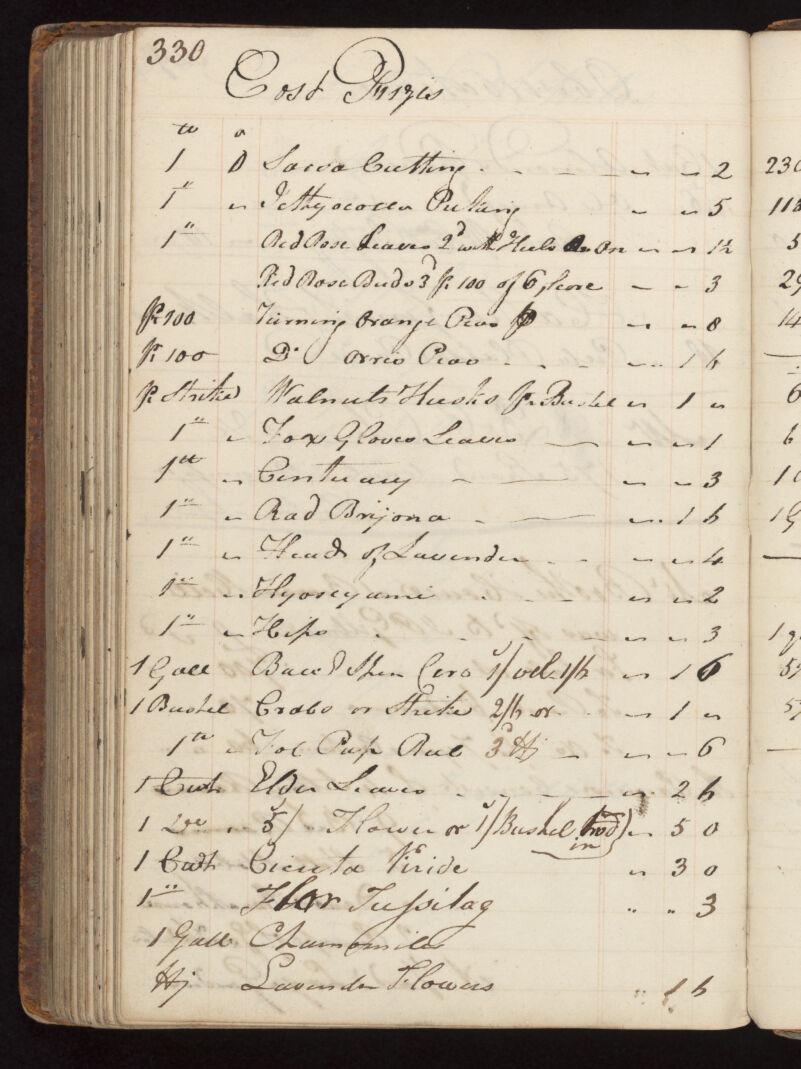 330
Cost Prizis
lb o
1 0 Sacca Cutting - - - " " 2
1" " Icthyocolla Picking " " 5
1" Red Rose Leaves 2d with Heels on " " 1½
Red Rose Buds 3d pr 100 of 6 score - - 3
pr 100 Turning Orange Peas " " 8
pr 100 Do orris Peas - - " 1 6
pr Strike Walnuts Husks pr Bushel " 1 "
1" " Fox Gloves Leaves — " " 1
1lb " Centuary - — " " 3
1" " Rad Brijona - — " 1 6
1" " Heads of Lavender - " " 4
1" " Hyoscyami - - " " 2
1" " Hips - - " " 3
1 Gall Bacc Spin Cerv 1/ vel 1/6 " 1 6
1 Bushel Crabs or Strike 2/6 or - " 1 "
1lb " Fol Pap Rub 3d Hj - " " 6
1 Cwt Elder Leaves - - - " 2 6
1 Do " 5/ Flower or 1/ Bushel " 5 0
in
1 Cwt Cicuta Viride " 3 0
1" Flor Tussilag " " 3
1 Gall Chamomiles
Hj Lavender Flowers " 1 6
230
118
5
29
14
6
6
10
19